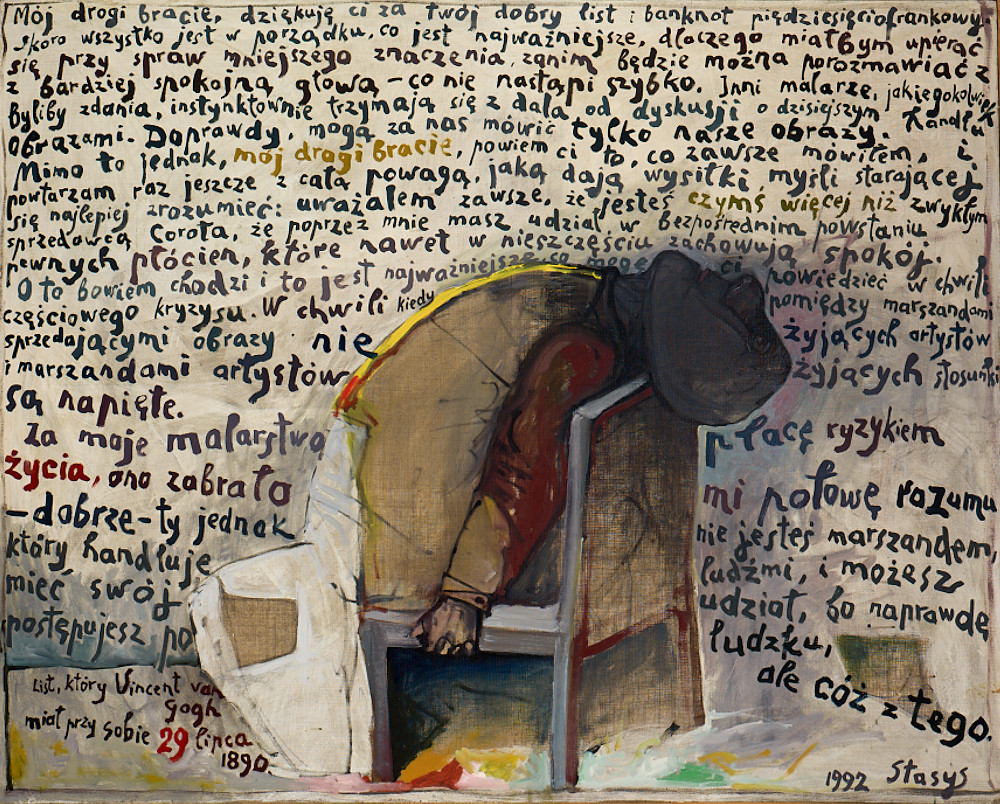 Mój drogi bracie, dziękuję ci za twój dobry list i banknot pięćdziesięciofrankowy.
Skoro wszystko jest w porządku, co jest najważniejsze, dlaczego miałbym upierać
się przy spraw mniejszego znaczenia, zanim będzie można porozmawiać z
z bardziej spokojną głową – co nie nastąpi szybko. Inni malarze, jakiegokolwiek
byliby zdania, instynktownie trzymają się z dala od dyskusji o dzisiejszym handlu
obrazami. Doprawdy, mogą za nas mówić tylko nasze obrazy.
Mimo to jednak, mój drogi bracie, powiem ci to, co zawsze mówiłem, i
powtarzam raz jeszcze z całą powagą, jaką dają wysiłki myśli starającej
się najlepiej zrozumieć: uważałem zawsze, że jesteś czymś więcej niż zwykłym
sprzedawcą Corota, że poprzez mnie masz udział w bezpośrednim powstaniu
pewnych płócien, które nawet w nieszczęściu zachowują spokój.
O to bowiem chodzi i to jest najważniejsze, co mogę ci powiedzieć w chwili
częściowego kryzysu. W chwili kiedy pomiędzy marszandami
sprzedającymi obrazy nie żyjących artystów
i marszandami artystów żyjących stosunki
są napięte.
Za moje malarstwo płacę ryzykiem
życia, ono zabrało mi połowę rozumu
– dobrze – ty jednak nie jesteś marszandem,
który handluje ludźmi, i możesz
mieć swój udział, bo naprawdę
postępujesz po ludzku,
ale cóż z tego.
List, który Vincent van
Gogh
miał przy sobie 29 lipca
1890.
1992 Stasys